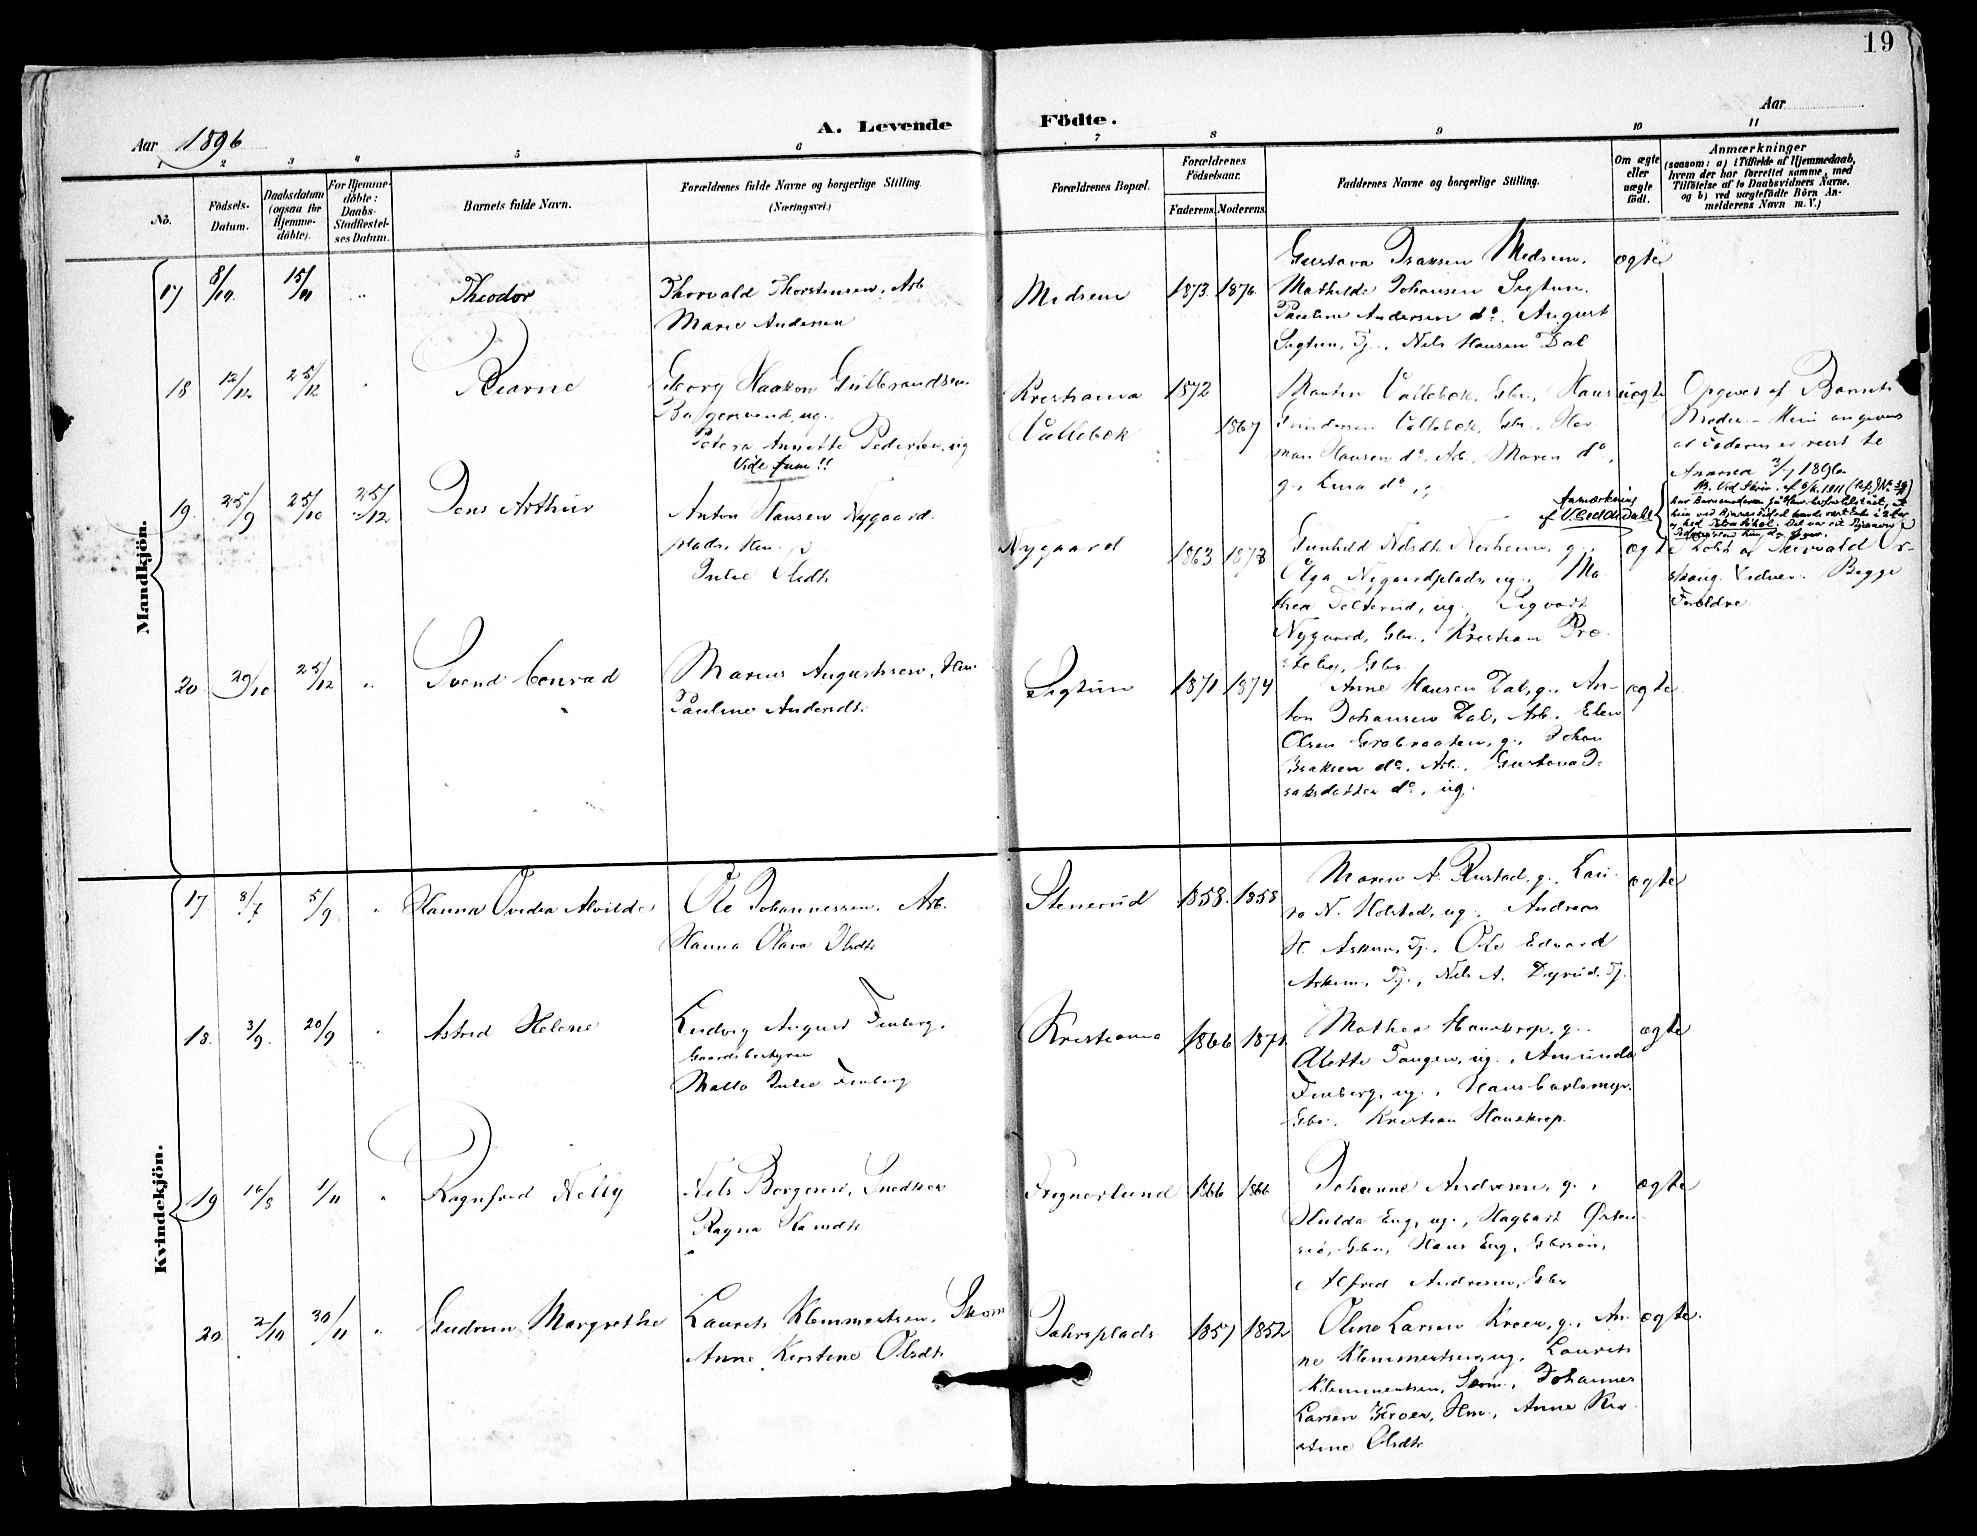 19
Aar 1896
A. Levende Födte.
Aar
1 2 3 4 5 6 7 8 9 10 11
No.
Födsels-Datum.
Daabsdatum (ogsaa for Hjemme-döbte).
For Hjemme-döbte: Daabs-Stadfæstel-ses Datum.
Barnets fulde Navn.
Forældrenes fulde Navne og borgerlige Stilling.
(Næringsvei.)
Forældrenes Bopæl.
Forældrenes Födselsaar.
Faderens. Moderens.
Faddernes Navne og borgerlige Stilling.
Om ægte eller uægte födt.
Anmærkninger
(saasom: a) i Tilfælde af Hjemmedaab,
hvem der har forrettet samme, med
Tilföielse af to Daabsvidners Navne.
og b) ved uægtefödte Börn An-
melderens Navn m. V.)
Mandkjön.
17 8/10. 15/11 Theodor
Thorvald Thorstensen, Arb.
Marie Andersen
Medsem 1873. 1876.
Gustava Isaksen Medsem.
Mathilde Johansen Sigtun.
Pauline Andersen do. August
Sigtun, Tj., Nils Hansen Dal
ægte
18 12/12 25/12 Bearne
Georg Haakon Gulbrandsen
ug.
Petera Annette Pedersen, ug
Vide funn!!
Kristiania 1872
Vallebæk 1867
Marten Vallebæk, Gbr., Hans
Vallebæk, Gbr., Her
man Hansen do, Arb., Maren do,
g., do,
uægte
Opgivet af Barnets
Moder. Hun angiver
at Faderen er reist til
Amerika 3/7 1896.
Anmærkning
af
19. 25/9 25/10 25/12 Jens Arthur
Anton Hansen Nygaard.
plads,
Julie Olsdtr
Nygaard 1863 1873
Gunhild Nilsdtr g.,
Olga Nygaardplads, ug., Ma
thea ug., Sigvart
Nygaard, Gbr., Kristian Præ
steby, Gbr.
ægte
Begge
Forældre
20 29/10 25/12 Svend Conrad
Marius Augustsen,
Pauline Andersdtr
Sigtun 1871 1874
Anne Hansen Dal, g., An-
ton Johansen Dal, Arb., Elen
Olsen g., Johan
Isaksen do, Arb., Gustava I-
saksdatter do, ug.
ægte
Kvindekjön.
17 8/7 5/9 Hanna Ovedia Alvilde
Ole Johannessen. Arb.
Hanna Olava Olsdtr
Stenerud 1858. 1858
Maren A. Rustad, g., Lau-
ra N. Holstad, ug., Andreas
H. Askum, Tj., Ole Edvard
Askim, Tj., Nils A. Dyrud, Tj.
ægte
18. 3/9. 20/9 Astrid Helene
Ludvig August Finberg.
Gaardsbestyrer
Malla Julie Finberg
Kristiania 1866 1871
Mathea Hauskrop, g.
Alette Tangen, ug., Amunda
Finberg, ug., Hans
Gbr., Kristian Hauskrop.
ægte
19 16/8 1/11 Ragnfred Nelly
Nils Borgersen, Snedker
Ragna Hansdtr
Frignerlund 1866 1866
Johanne Andresen, g.,
Hulda Eng, ug., Hagbart Østen-
Gbr, Hans Eng, Gbrsøn,
Alfred Andresen, Gbr
ægte
20. 2/10 30/11 Gudrun Margrethe
Laurits Klemmetsen, Skom
Anne Kirstine Olsdtr
Jahrsplads 1857 1852
Oline Larsen Kroer, g., An-
ne Klemmetsen, ug, Laurits
Klemmentsen, Skom., Johannes
Larsen Kroer, Hm., Anne Kir
stine Olsdtr
ægte.